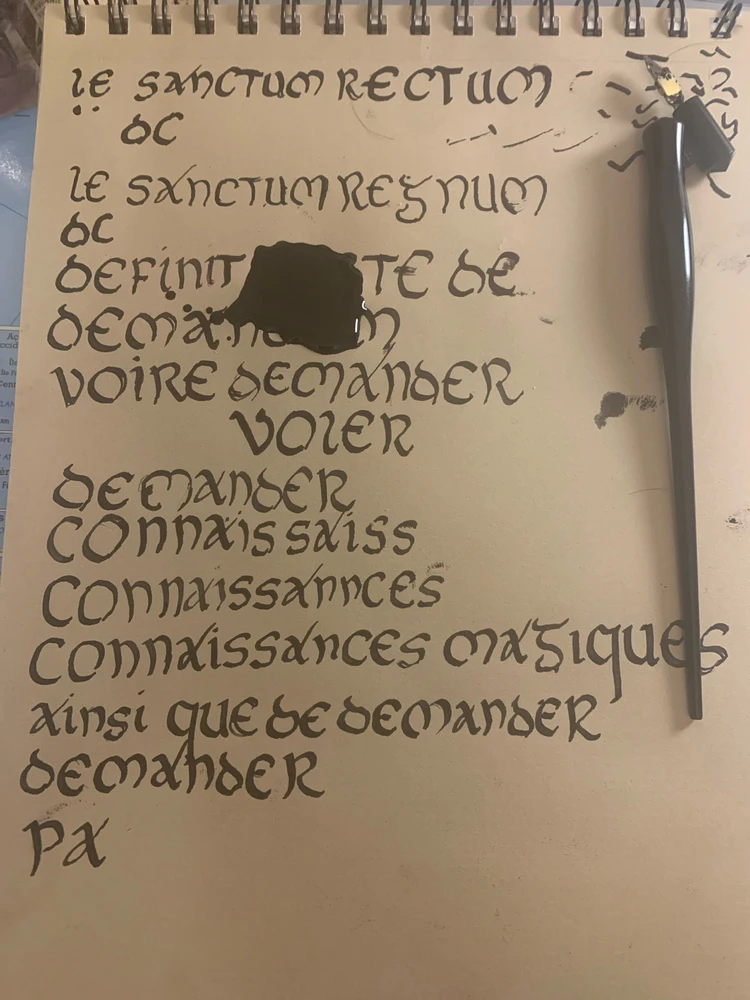 le sanctum Rectum
dc
le sanctum Regnum
dc
definit te de
voire demander
voler
demander
connais saiss
connaissannces
connaissances magiques
ainsi que de demander
demander
pa